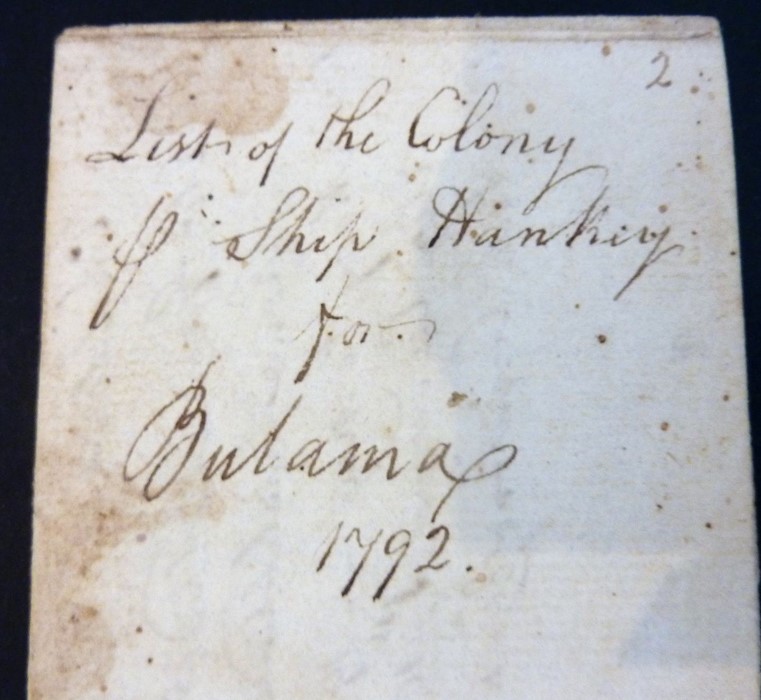 2
List of the Colony
⅌ Ship Hankey
for
Bulama
1792.